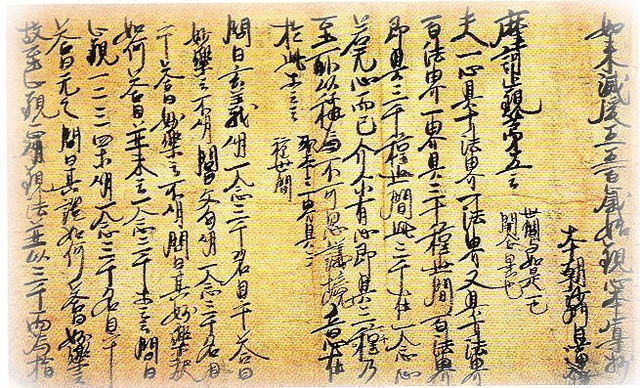 如来滅後五五百歳始観心本尊抄
本朝沙門日蓮撰
摩訶止観第五云
世間与如是一也
開合異也
夫一心具十法界一法界又具十法界
百法界一界具三十種世間百法界
即具三千種世間此三千在一念心
若无心而已介尓有心即具三千乃
至所以称為不可思議境意在
於此等云云
或本云一界具三
種世間
問曰玄義明一念三千名目乎答曰
妙楽云不明問曰文句明一念三千名目
乎答曰妙楽云不明問曰其妙楽釈
如何答曰並未云一念三千等云云問曰
止観一二三四等明一念三千名目乎
答曰无之問曰其証如何答曰妙楽云
故至止観正明観法並以三千而為指